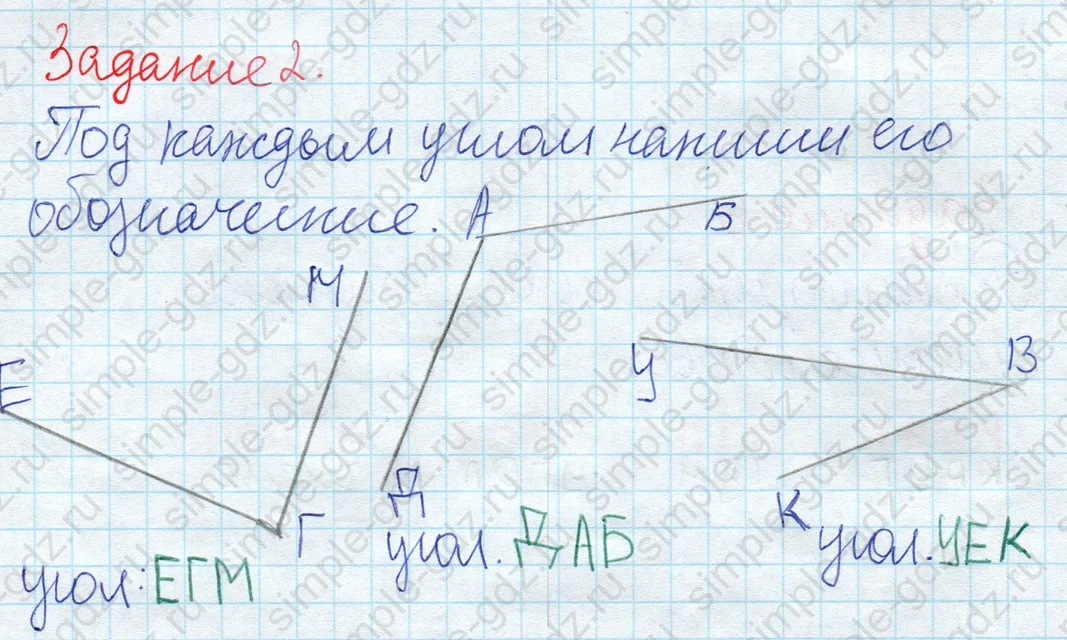 Задание 2.
Под каждым углом напиши его
обозначение.
А
Б
М
У
В
Е
Д
К
Г
угол: ЕГМ
угол. ДАБ
угол. УЕК
simple-gdz.ru